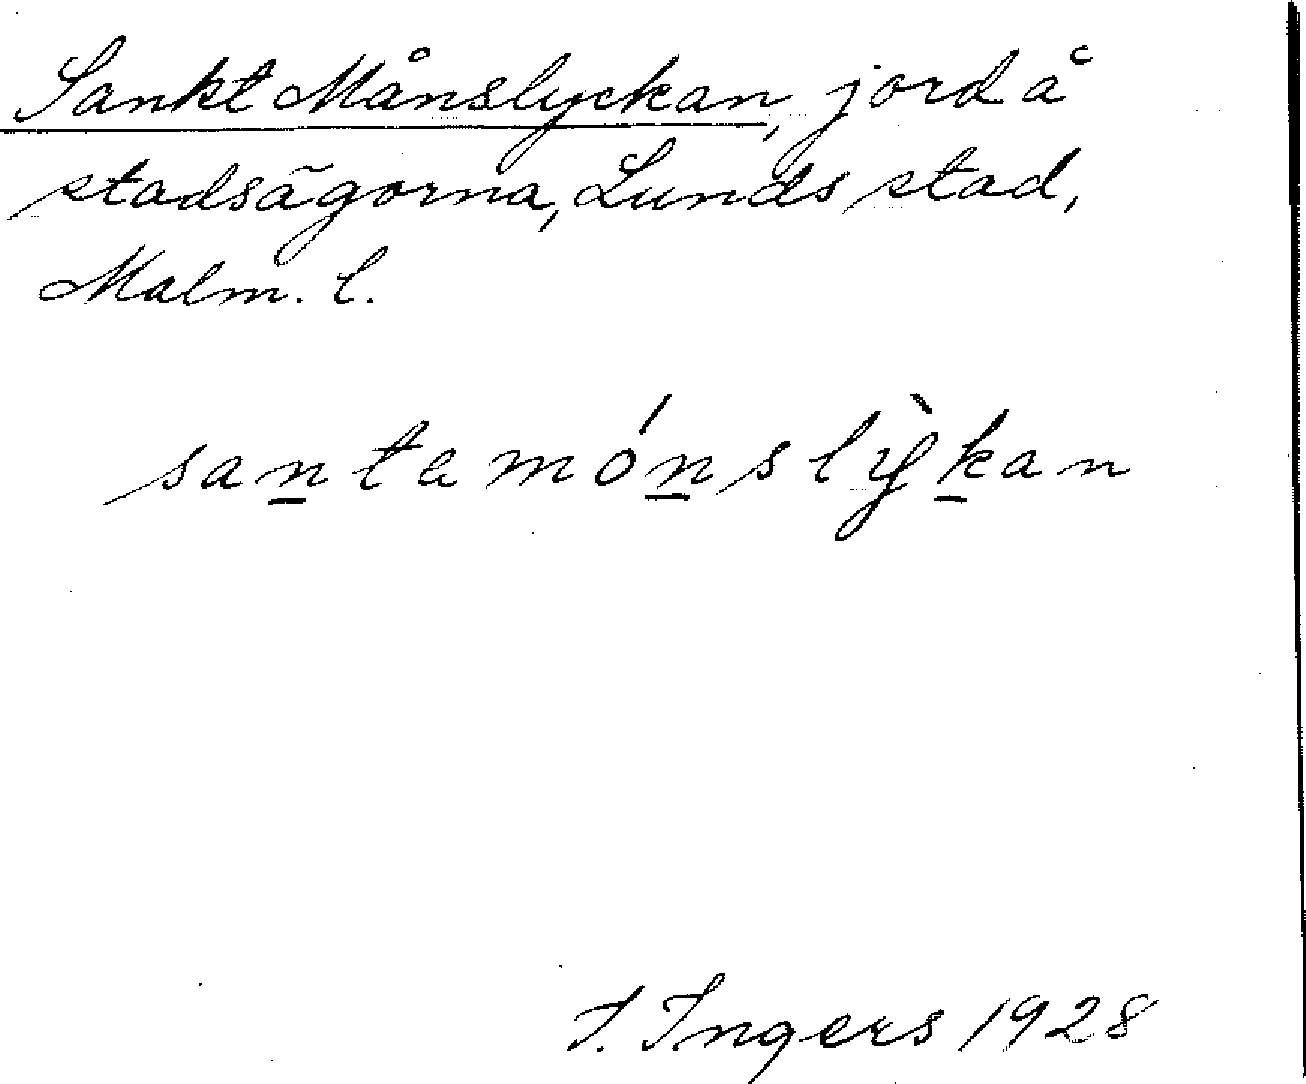 Sankt Månslyckan, jord å
stadsägorna, Lunds stad,
Malm. l.
santamónslỳkan
I. Ingers 1928